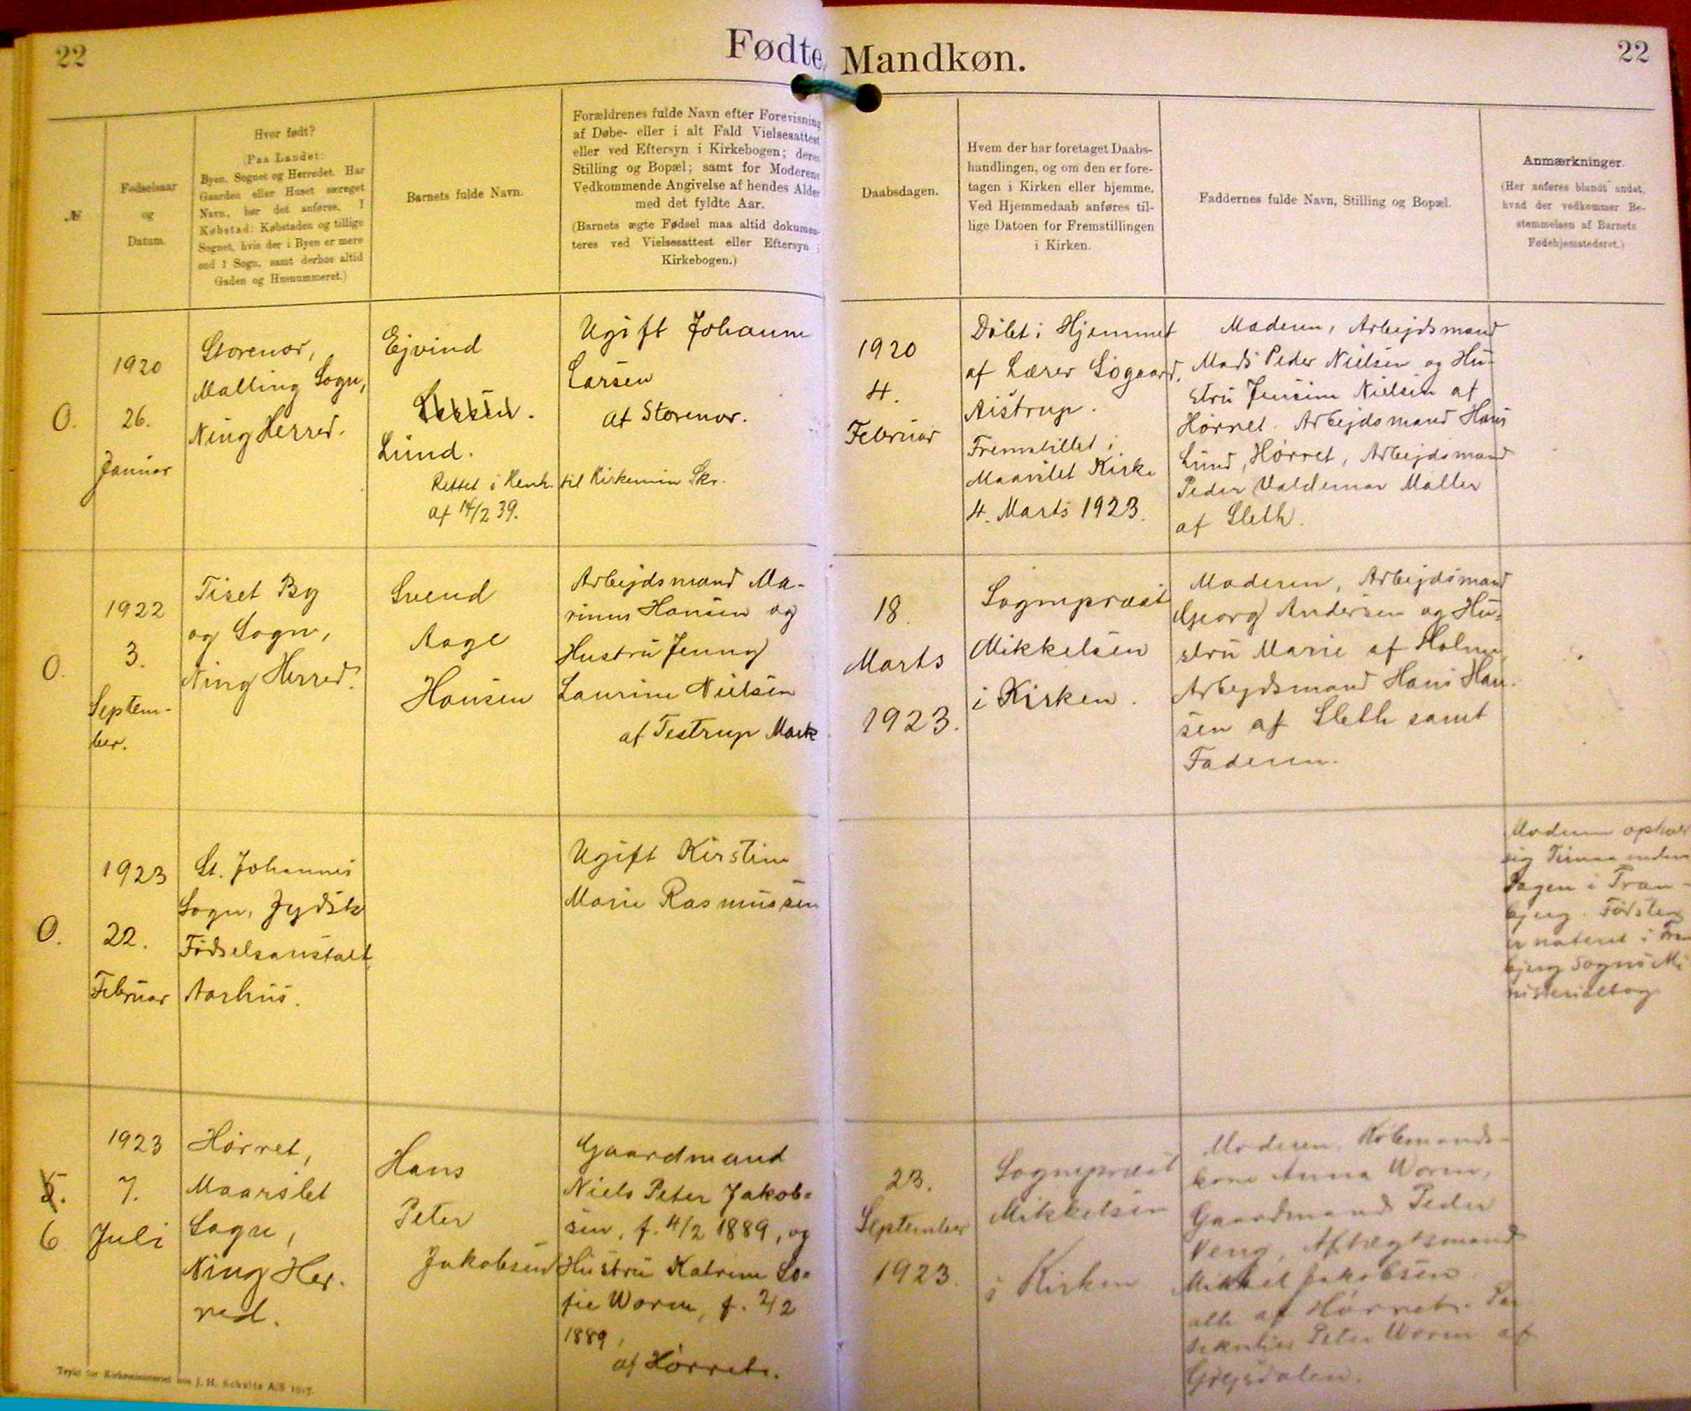 22
Fødte, Mandkøn.
22
№
Fødselsaar
og
Datum.
Hvor født?
(Paa Landet:
Byen, Sognet og Herredet. Har
Gaarden eller Huset særeget
Navn, bør det anføres. I
Købstad: Købstaden og tillige
Sognet, hvis der i Byen er mere
end 1 Sogn, samt derhos altid
Gaden og Husnummeret.)
Barnets fulde Navn.
Forældrenes fulde Navn efter Forevisning
af Døbe- eller i alt Fald Vielsesattest
eller ved Eftersyn i Kirkebogen; deres
Stilling og Bopæl; samt for Moderens
Vedkommende Angivelse af hendes Alder
med det fyldte Aar.
(Barnets ægte Fødsel maa altid dokumen-
teres ved Vielsesattest eller Eftersyn i
Kirkebogen.)
Daabsdagen.
Hvem der har foretaget Daabs-
handlingen, og om den er fore-
tagen i Kirken eller hjemme.
Ved Hjemmedaab anføres til-
lige Datoen for Fremstillingen
i Kirken.
Faddernes fulde Navn, Stilling og Bopæl.
Anmærkninger.
(Her anføres blandt andet,
hvad der vedkommer Be-
stemmelsen af Barnets
Fødehjemstedsret.)
0.
1920
26.
Januar
Storenor,
Malling Sogn,
Ning Herred.
Ejvind
Larsen.
Lund.
Rettet i Henh. til Kirkemin Skr.
af 14/2 39.
Ugift Johanne
Larsen
af Storenor.
1920
4.
Februar
Døbt i Hjemmet
af Lærer Søgaard,
Aistrup.
Fremstillet i
Maarslet Kirke
4. Marts 1923.
Moderen, Arbejdsmand
Mads Peder Nielsen og Hu-
stru Jensine Nielsen af
Hørret. Arbejdsmand Hans
Lund, Hørret, Arbejdsmand
Peder Valdemar Møller
af Sleth.
0.
1922
3.
Septem-
ber.
Tiset By
og Sogn,
Ning Herred.
Svend
Aage
Hansen
Arbejdsmand Ma-
rinus Hansen og
Hustru Jenny
Laurine Nielsen
af Testrup Mark
18.
Marts
1923.
Sognepræst
Mikkelsen
i Kirken.
Moderen, Arbejdsmand
Georg Andersen og Hu-
stru Marie af Holme,
Arbejdsmand Hans Han-
sen af Sleth samt
Faderen.
0.
1923
22.
Februar
St. Johannes
Sogn, Jydsk
Fødselsanstalt,
Aarhus.
Ugift Kirstine
Marie Rasmussen
Moderen
sig
Dagen i Tran-
bjerg. Fødslen
er noteret i Tran
bjerg Sogns Mi
nisterialbog
5.
6
1923
7.
Juli
Hørret,
Maarslet
Sogn,
Ning Her-
red.
Hans
Peter
Jakobsen
Gaardmand
Niels Peter Jakob-
sen, f. 4/2 1889, og
Hustru Katrine So-
fie Worm, f. 2/2
1889,
af Hørret.
23.
September
1923.
Sognepræst
Mikkelsen
i Kirken
Moderen, Købmands-
kone Anna Worm,
Gaardmand Peder
Veng, Aftægtsmand
Mikkel Jakobsen
alle af Hørret.
Peter Worm af
Grejsdalen.
Trykt for Kirkeministeriet hos J. H. Schultz A/S 1917.